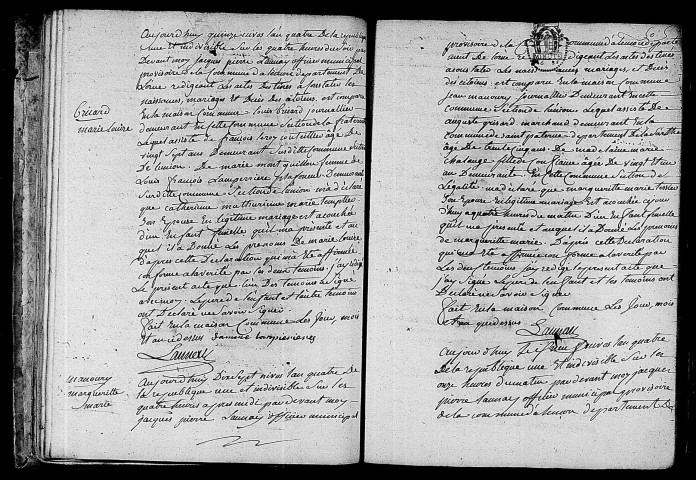 Aujourd'huy quinze nivos l'an quatre de la republique
une et indivisible sur les quatre heures du soir par
Devant moy Jacques pierre Launay officier municipal
provisoire de la Commune d'alencon departement de
L'orne redigeant Les actes des tinés a constater les
naissances, mariages et Décés des citoiens, est comparu
En la maison Commune Louis Pricard journallier
Pricard
marie Louise
demeurant en cette Commune Section de la fraternité
Lequel assisté de françois leroy coutellier âgé de
vingt sept ans Demeurant Susditte Commune Section
De l'union. De marie montquillon femme de
Louis françois Lamperriere Demeurant
Susditte Commune Section de L'union m'a déclaré
que Catherine mathurinne marie
Son Epouse En legitime mariage est acouchée
d'un enfant femelle qu'il m'a presenté et au
quel il a Donné Les prenoms De marie Louise
D'apres cette Declaration qui m'a Eté affirmée
conforme a la verité par les deux temoins j'ay redigé
Le présent acte que L'un Des temoins a signé
avec moy. Le pere de l'enfant et l'autre temoins
ont Declaré ne savoir Signer
fait En la maison Commune Les jour, mois
et an cidessus
Launay
manoury
margueritte
marie
Aujourd'huy Dix Sept nivos l'an quatre de
la republique une et indivisible Sur les
quatre heures après midi par devant moy
Jacques pierre Launay officier municipal
provisoire de la Commune d'alencon departe
ment de L'orne redigeant les actes des tinés
a constater Les naissances, mariages, et Décés
des citoyens est comparu En la maison Commune
jean manoury journallier Demeurant en cette
Commune Section de L'union Lequel assisté De
auguste grisard marchand demeurant en la
Commune de saint paterne departement de la Sarthe
âgé De trente cinq ans. De madelaine marie
chalange fille de Confiance âgée De vingt et un
an Demeurant En cette Commune Section de
L'égalité m'a déclaré que margueritte marie
Son Epouse En legitime mariage est acouchée ajour
d'huy a quatre heures du matin D'un Enfant femelle
qu'il me présente et auquel il a Donné Les prenoms
de margueritte marie. D'après cette Declaration
qui m'a Eté affirmée conforme a la verité par
Les deux temoins j'ay redigé le présent acte que
j'ay Signé Le pere de l'enfant et les temoins ont
Declaré ne savoir Signer
fait En la maison Commune Les Jour, mois
et an que dessus
Launay
Aujourd'huy nivos l'an quatre
De la republique une Et indivisible sur les
onze heures du matin par devant moy jacques
pierre Launay officier municipal provisoire
de la commune d'alencon departement de